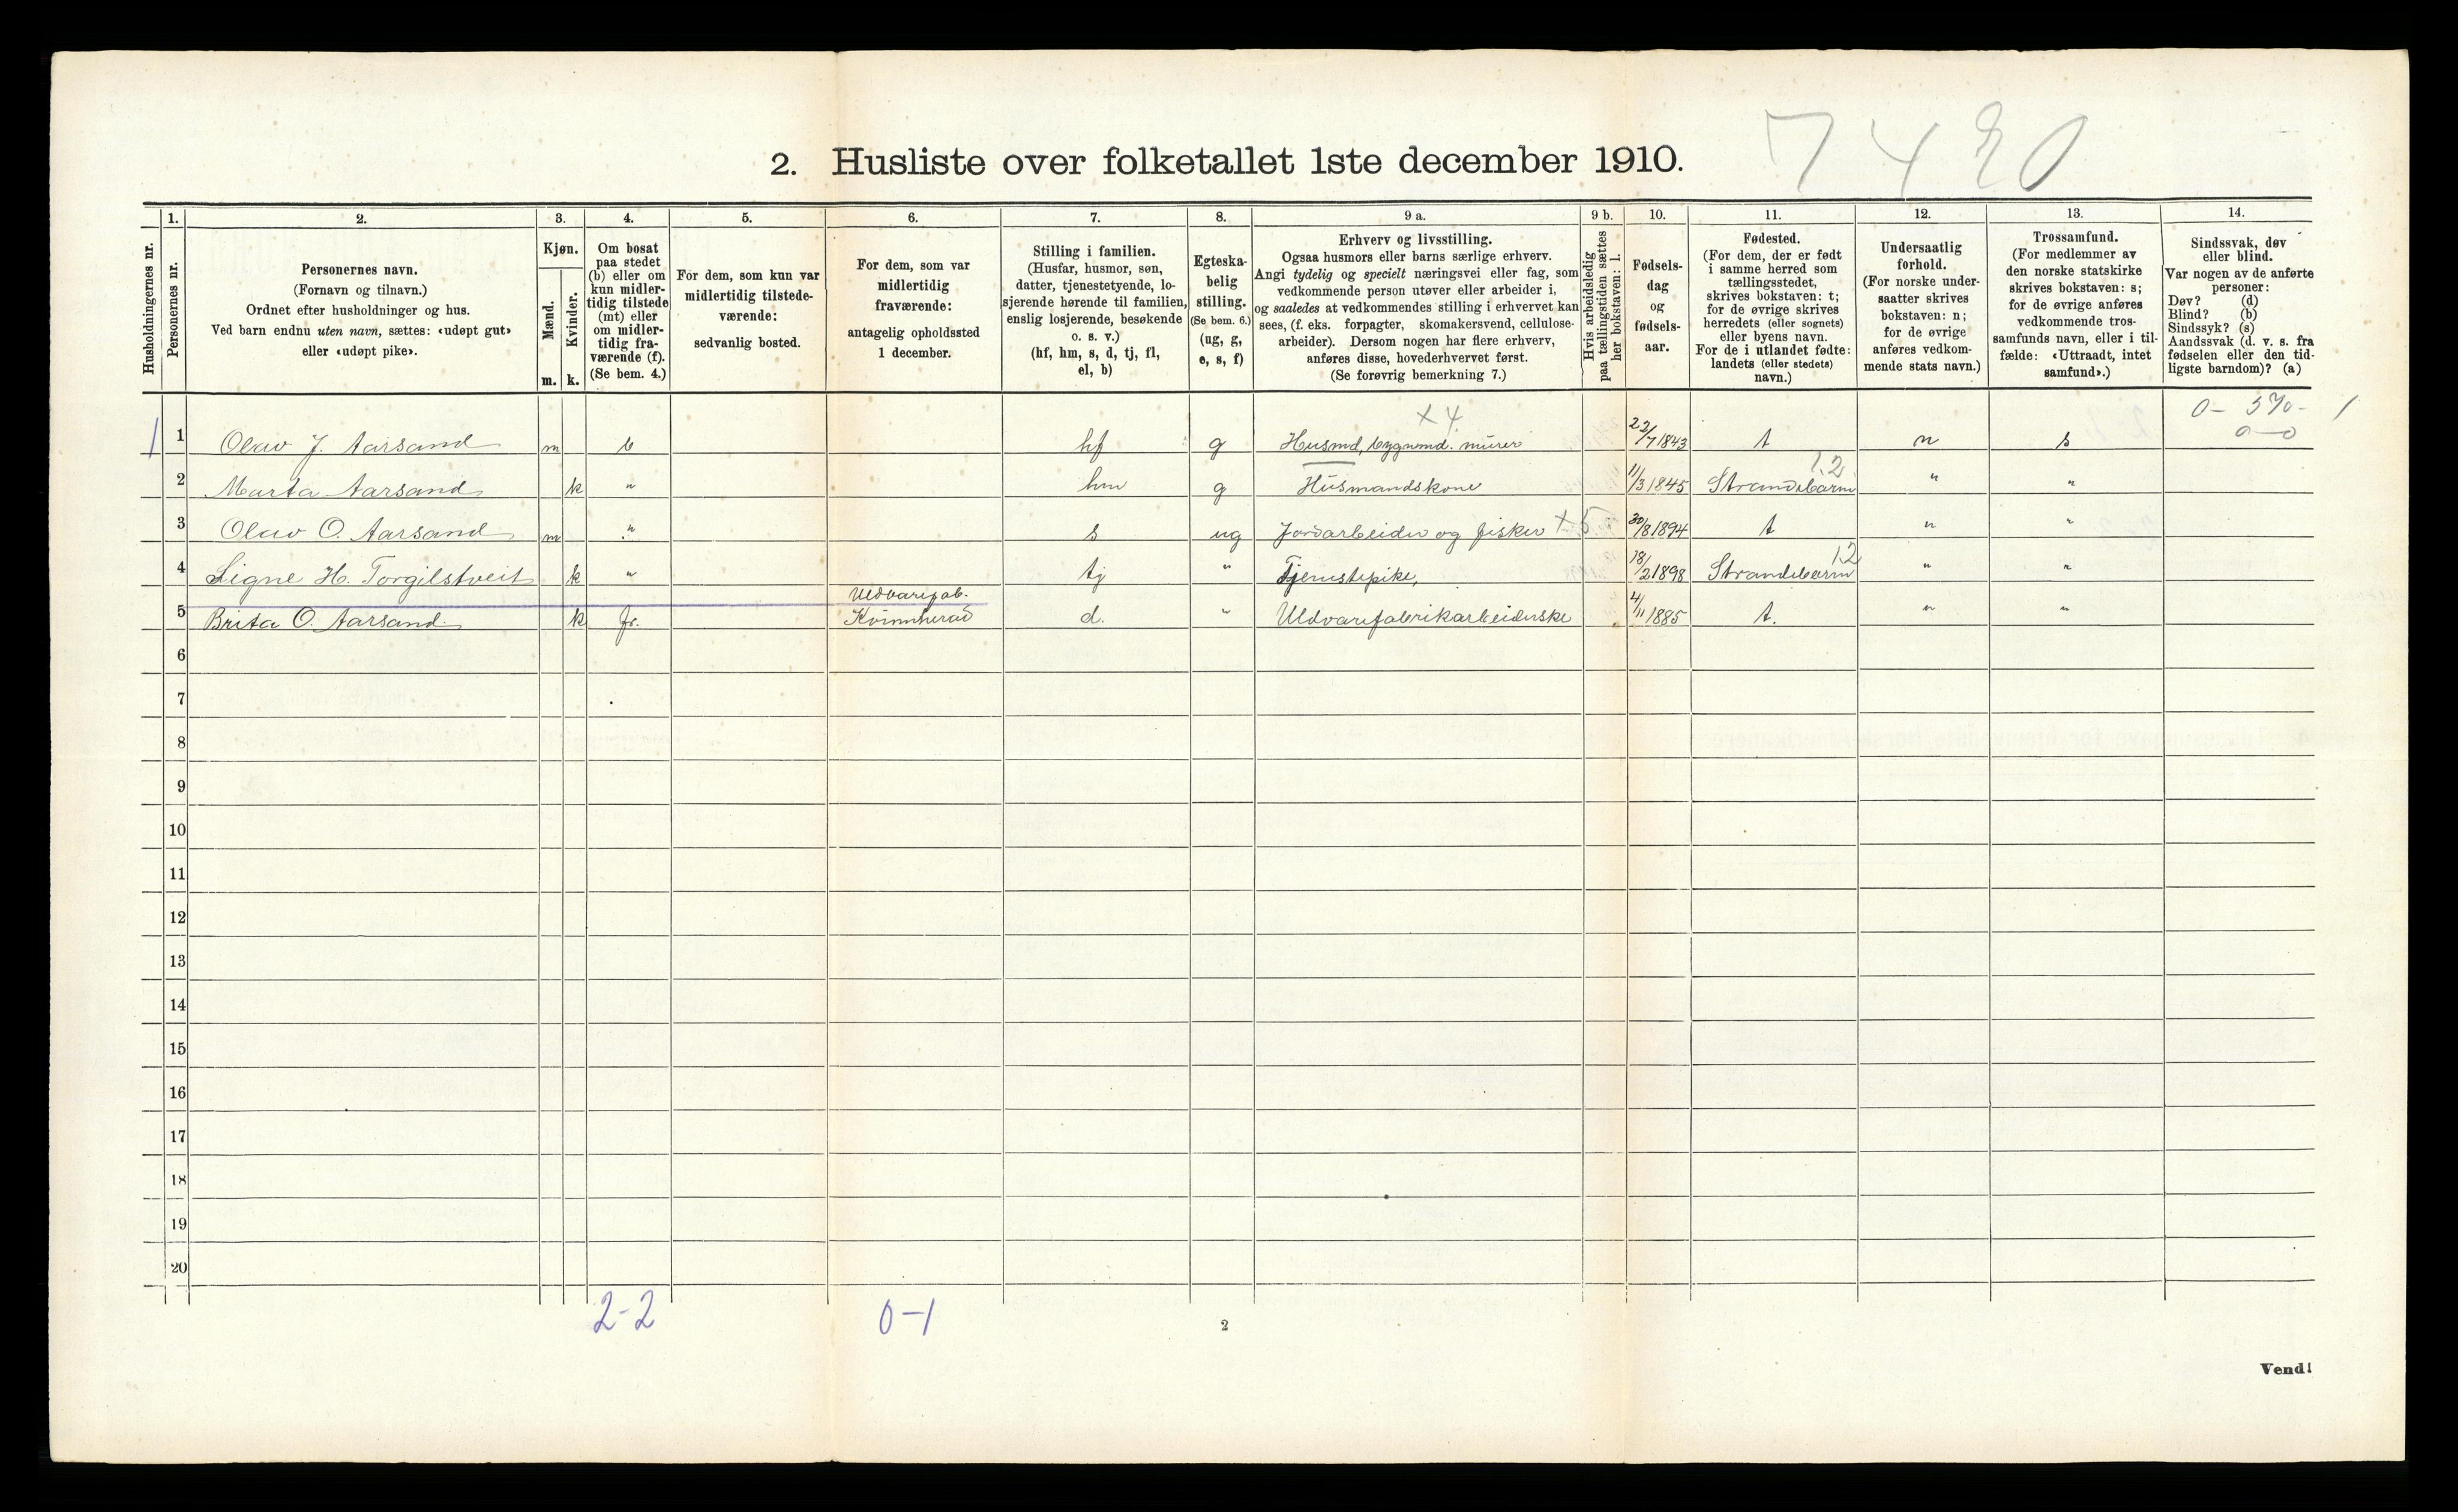 7420
2. Husliste over folketallet 1ste december 1910.
Husholdningernes nr.
1. Personernes nr.
2. Personernes navn.
(Fornavn og tilnavn.)
Ordnet efter husholdninger og hus.
Ved barn endnu uten navn, sættes: «udøpt gut»
eller «udøpt pike».
3. Kjøn.
Mænd. m.
Kvinder. k.
4. Om bosat
paa stedet
(b) eller om
kun midler-
tidig tilstede
(mt) eller
om midler-
tidig fra-
værende (f).
(Se bem. 4.)
5. For dem, som kun var
midlertidig tilstede-
værende:
sedvanlig bosted.
6. For dem, som var
midlertidig
fraværende:
antagelig opholdssted
1 december.
7. Stilling i familien.
(Husfar, husmor, søn,
datter, tjenestetyende, lo-
sjerende hørende til familien,
enslig losjerende, besøkende
o. s. v.)
(hf, hm, s, d, tj, fl,
el, b)
8. Egteska-
belig
stilling.
(Se bem. 6.)
(ug, g,
e, s, f)
9 a. Erhverv og livsstilling.
Ogsaa husmors eller barns særlige erhverv.
Angi tydelig og specielt næringsvei eller fag, som
vedkommende person utøver eller arbeider i,
og saaledes at vedkommendes stilling i erhvervet kan
sees, (f. eks. forpagter, skomakersvend, cellulose-
arbeider). Dersom nogen har flere erhverv,
anføres disse, hovederhvervet først.
(Se forøvrig bemerkning 7.)
9 b. Hvis arbeidsledig
paa tællingstiden sættes
her bokstaven: l.
10. Fødsels-
dag
og
fødsels-
aar.
11. Fødested.
(For dem, der er født
i samme herred som
tællingsstedet,
skrives bokstaven: t;
for de øvrige skrives
herredets (eller sognets)
eller byens navn.
For de i utlandet fødte:
landets (eller stedets)
navn.)
12. Undersaatlig
forhold.
(For norske under-
saatter skrives
bokstaven: n;
for de øvrige
anføres vedkom-
mende stats navn.)
13. Trossamfund.
(For medlemmer av
den norske statskirke
skrives bokstaven: s;
for de øvrige anføres
vedkommende tros-
samfunds navn, eller i til-
fælde: «Uttraadt, intet
samfund».)
14. Sindssvak, døv
eller blind.
Var nogen av de anførte
personer:
Døv? (d)
Blind? (b)
Sindssyk? (s)
Aandssvak (d. v. s. fra
fødselen eller den tid-
ligste barndom)? (a)
x 4. 0- 570- 1
0-0
1 1 Olav J. Aarsand m b hf g Husmd, bygnmd. murer 22/7 1843 t n s
12
2 Marta Aarsand k " hm g Husmandskone 11/3 1845 Strandebarm " "
3 Olav O. Aarsand m " s ug Jordarbeider og fisker x 5 30/8 1894 t " "
12
4 Signe H. Torgilstveit k " tj " Tjenestepike, 18/2 1898 Strandebarm " "
Uldvarefab.
5 Brita O. Aarsand k fr. Kvinnherad d. " Uldvarefabrikarbeiderske 4/11 1885 t. " "
6
7
8
9
10
11
12
13
14
15
16
17
18
19
20
2-2 0-1
2
Vend!